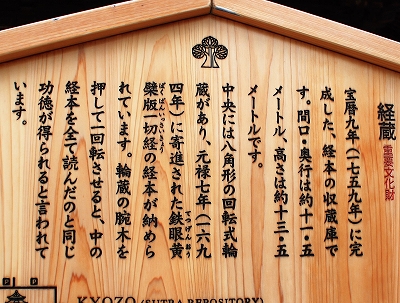 経蔵 重要文化財
宝暦九年（一七五九年）に完
成した、経本の収蔵庫で
す。間口・奥行は約十一・五
メートル、高さは約十三・五
メートルです。
中央には八角形の回転式輪
蔵があり、元禄七年（一六九
四年）に寄進された鉄眼黄
てつげんおう
檗版一切経の経本が納めら
ばくばんいっさいきょう
れています。輪蔵の腕木を
押して一回転させると、中の
経本を全て読んだのと同じ
功徳が得られると言われて
います。
KYOZO (SUTRA REPOSITORY)